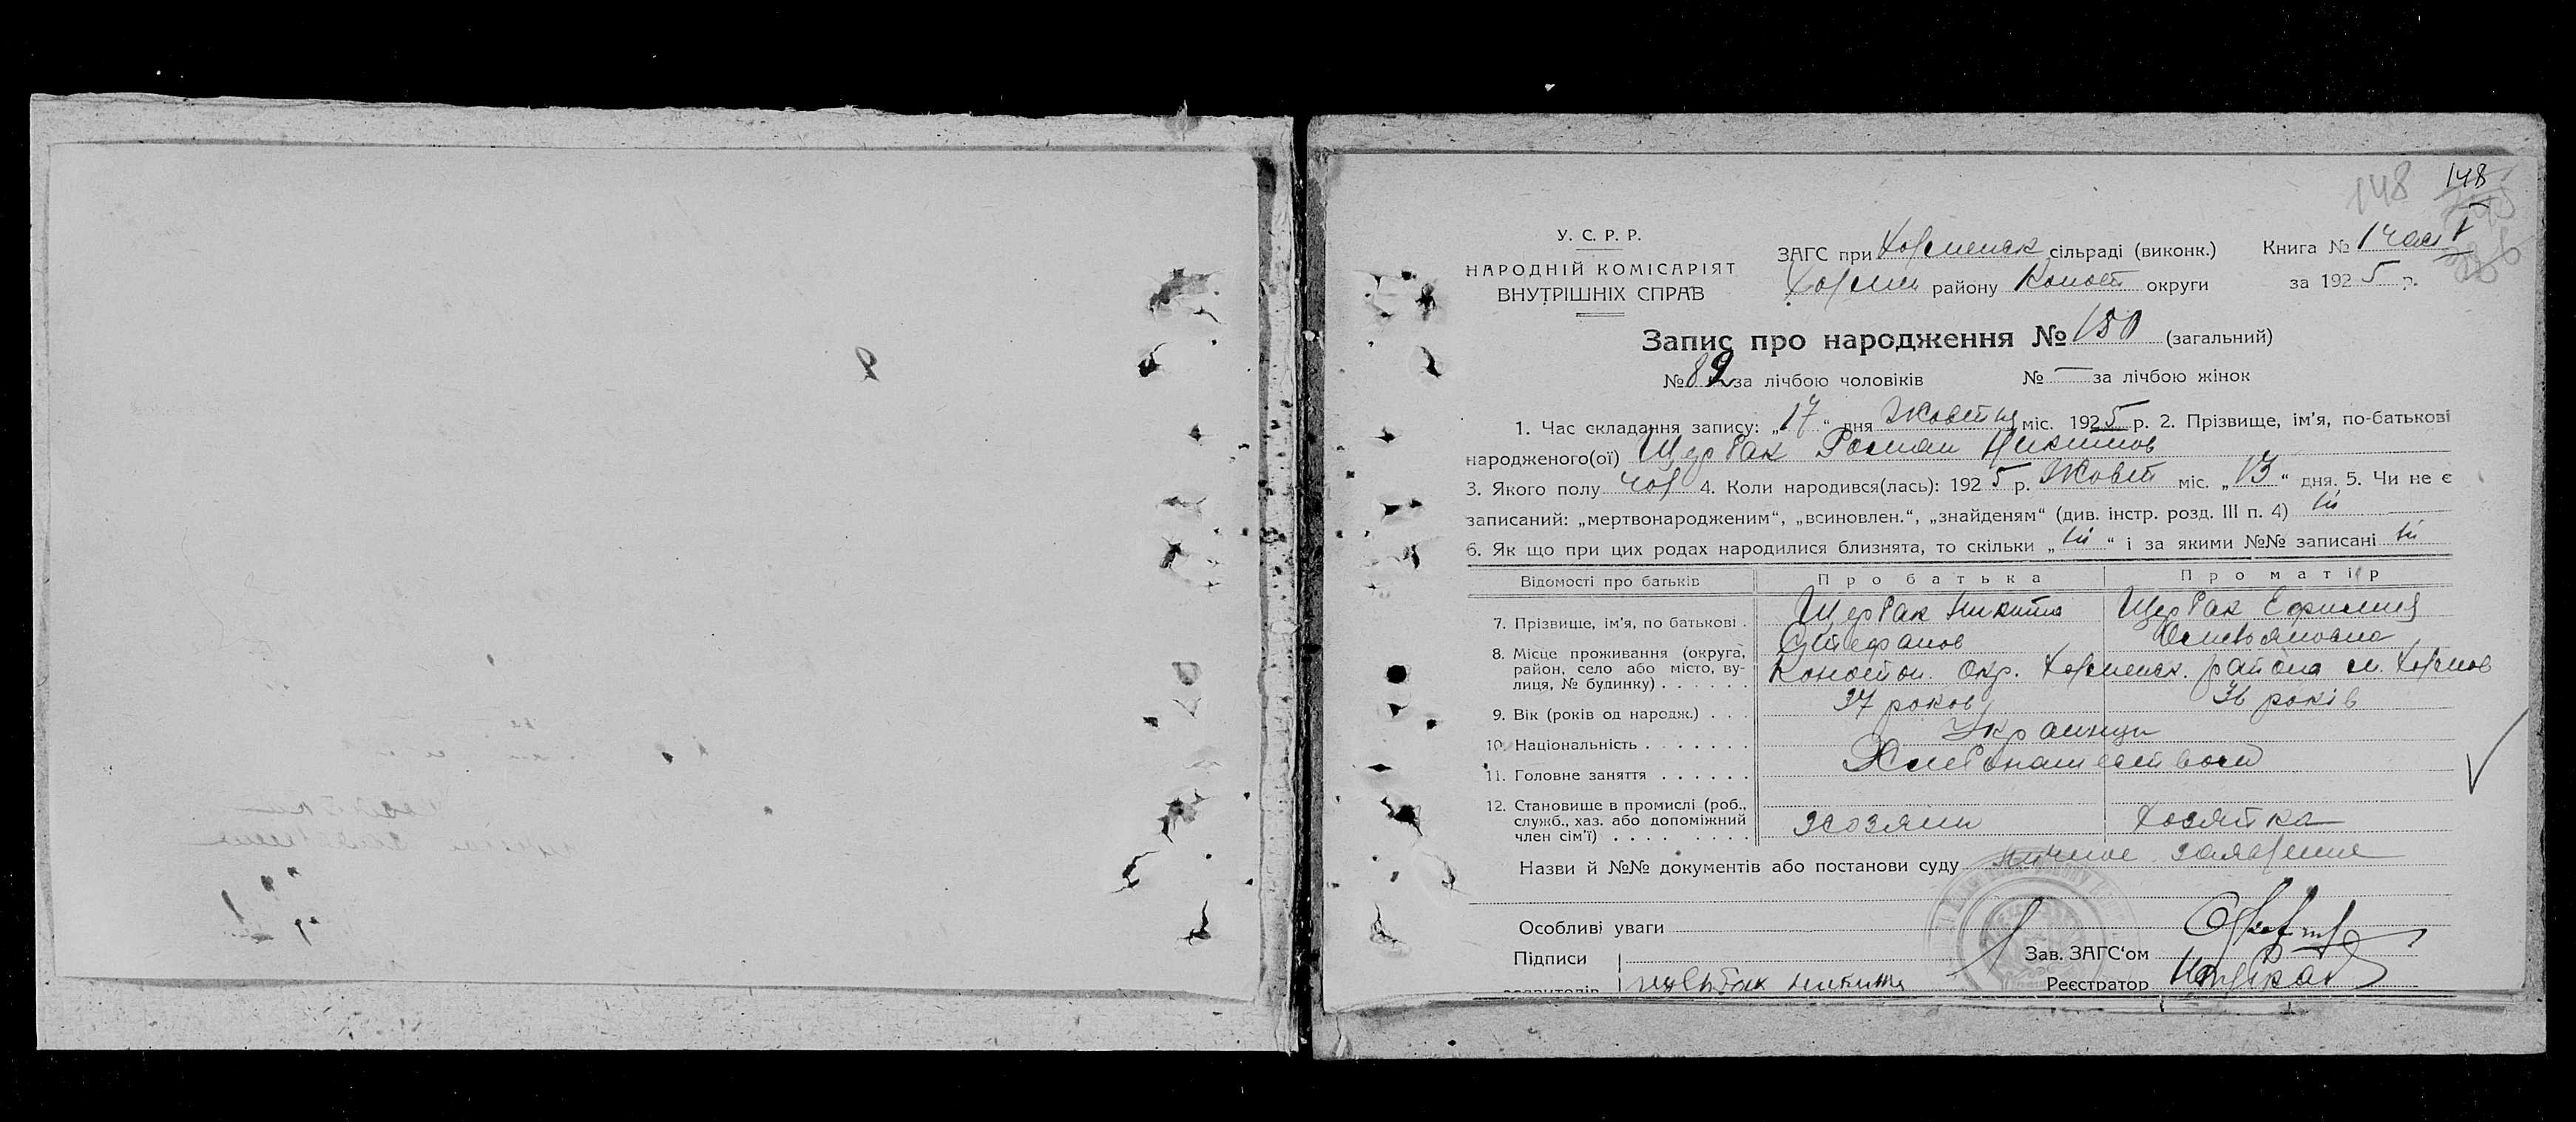 148 148
У. С. Р. Р.
НАРОДНІЙ КОМІСАРІЯТ
ВНУТРІШНІХ СПРАВ
ЗАГС при сільраді (виконк.) Книга № 1 част I
району Коноп округи за 1925 р.
Запис про народження № 150 (загальний)
№ 89 за лічбою чоловіків № — за лічбою жінок
1. Час складання запису: „17“ дня Жовтня міс. 1925 р. 2. Прізвище, ім'я, по-батькові
народженого(ої) Щербак Роман Никитов
3. Якого полу чол 4. Коли народився(лась): 1925 р. Жовт міс. „13“ дня. 5. Чи не є
записаний: „мертвонародженим“, „всиновлен.“, „знайденям“ (див. інстр. розд. III п. 4) ні
6. Як що при цих родах народилися близнята, то скільки „ні“ і за якими №№ записані ні
Відомості про батьків Про батька Про матір
7. Прізвище, ім'я, по батькові . Щербак Никита Щербак Ефимия
Стефанов
8. Місце проживання (округа,
район, село або місто, ву-
лиця, № будинку) . . . . . . Конотоп. Окр. района м.
9. Вік (років од народж.) . . . 37 роков 36 років
10. Національність . . . . . . . Українци
11. Головне заняття . . . . . . Хлебопашеством
12. Становище в промислі (роб.,
служб., хаз. або допоміжний
член сім'ї) . . . . . . . . . хозяин хозяйка
Назви й №№ документів або постанови суду личное заявление
Особливі уваги
Підписи
Зав. ЗАГС'ом
щербак никита
Реєстратор